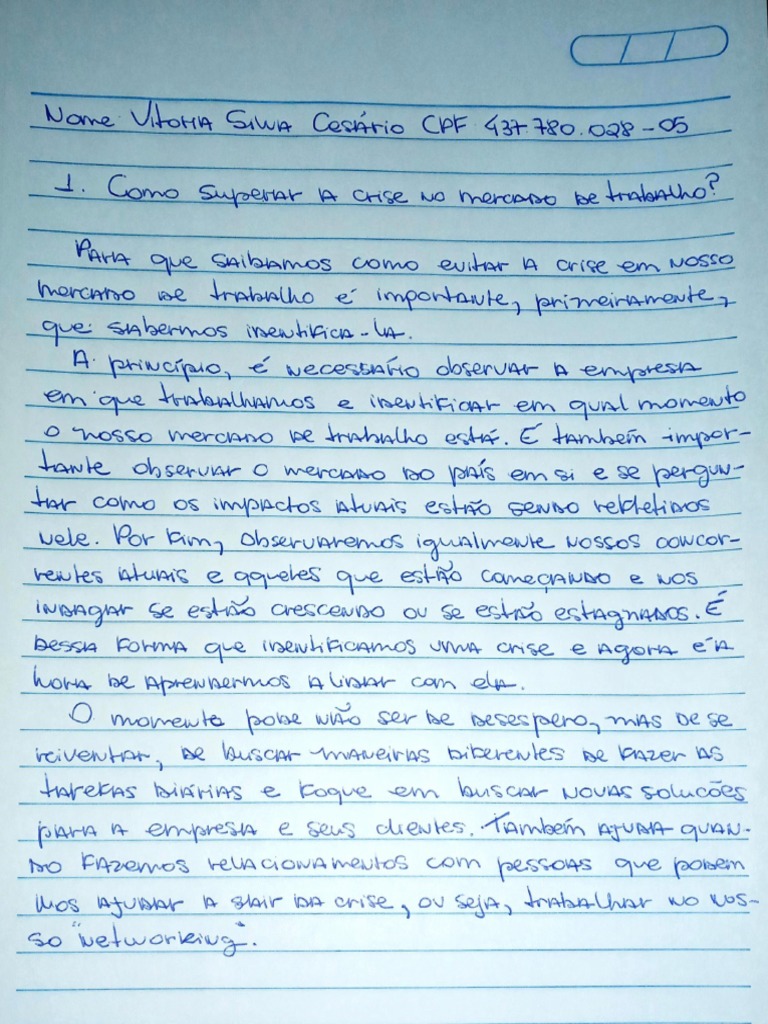 Nome Vitoria Silva Cesário CPF 437.780.028-05
1. Como superar a crise no mercado de trabalho?
Para que saibamos como evitar a crise em nosso
mercado de trabalho é importante, primeiramente,
que sabermos identifica-la.
A princípio, é necessário observar a empresa
em que trabalhamos e identificar em qual momento
o nosso mercado de trabalho está. É também impor-
tante observar o mercado do país em si e se pergun-
tar como os impactos atuais estão sendo refletidos
nele. Por fim, observaremos igualmente nossos concor-
rentes atuais e aqueles que estão começando e nos
indagar se estão crescendo ou se estão estagnados. É
dessa forma que identificamos uma crise e agora é a
hora de aprendermos a lidar com ela.
O momento pode não ser de desespero, mas de se
reiventar, de buscar maneiras diferentes de fazer as
tarefas diárias e foque em buscar novas soluções
para a empresa e seus clientes. Também ajuda quan-
do fazemos relacionamentos com pessoas que podem
nos ajudar a sair da crise, ou seja, trabalhar no nos-
so "networking".